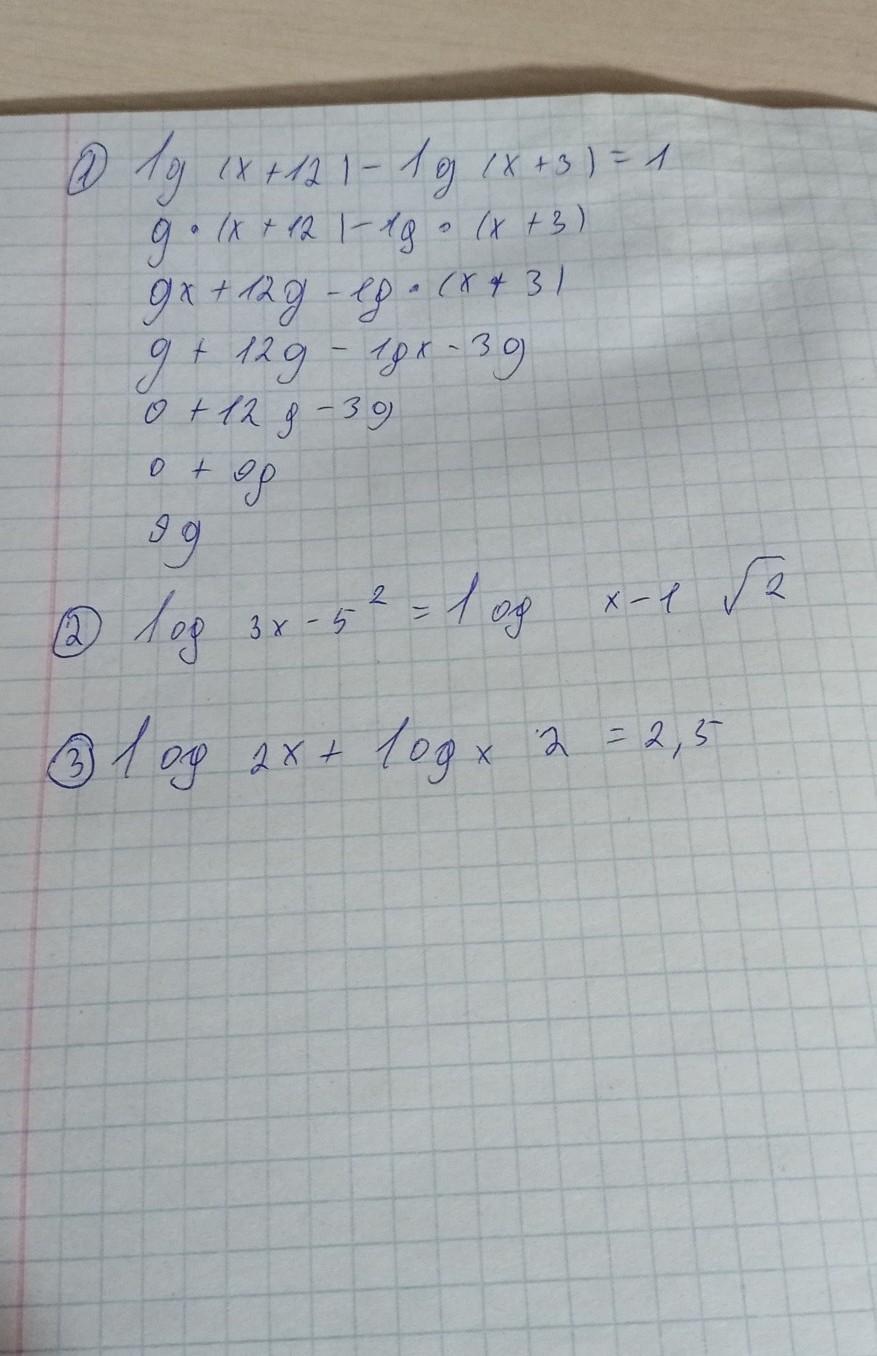 ① lg (x+12) - lg (x+3) = 1
g · (x+12) - 1g · (x+3)
gx + 12g - 1g · (x + 3)
g + 12g - 1gx - 3g
0 + 12g - 3g
0 + 9g
9g
② log 3x - 5² = log x-1 √2
③ log 2x + log x 2 = 2,5